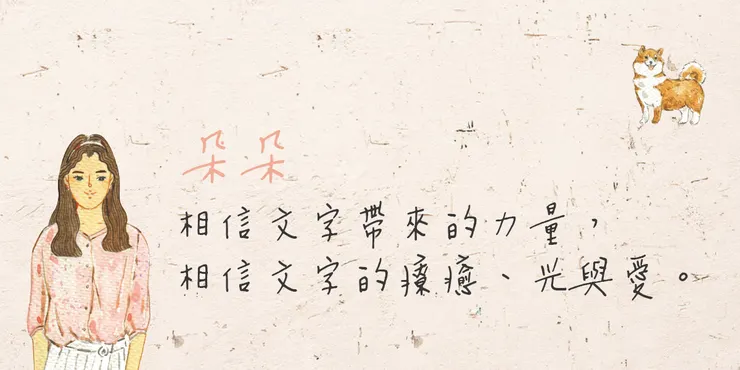 朵朵
相信文字帶來的力量，
相信文字的療癒、光與愛。